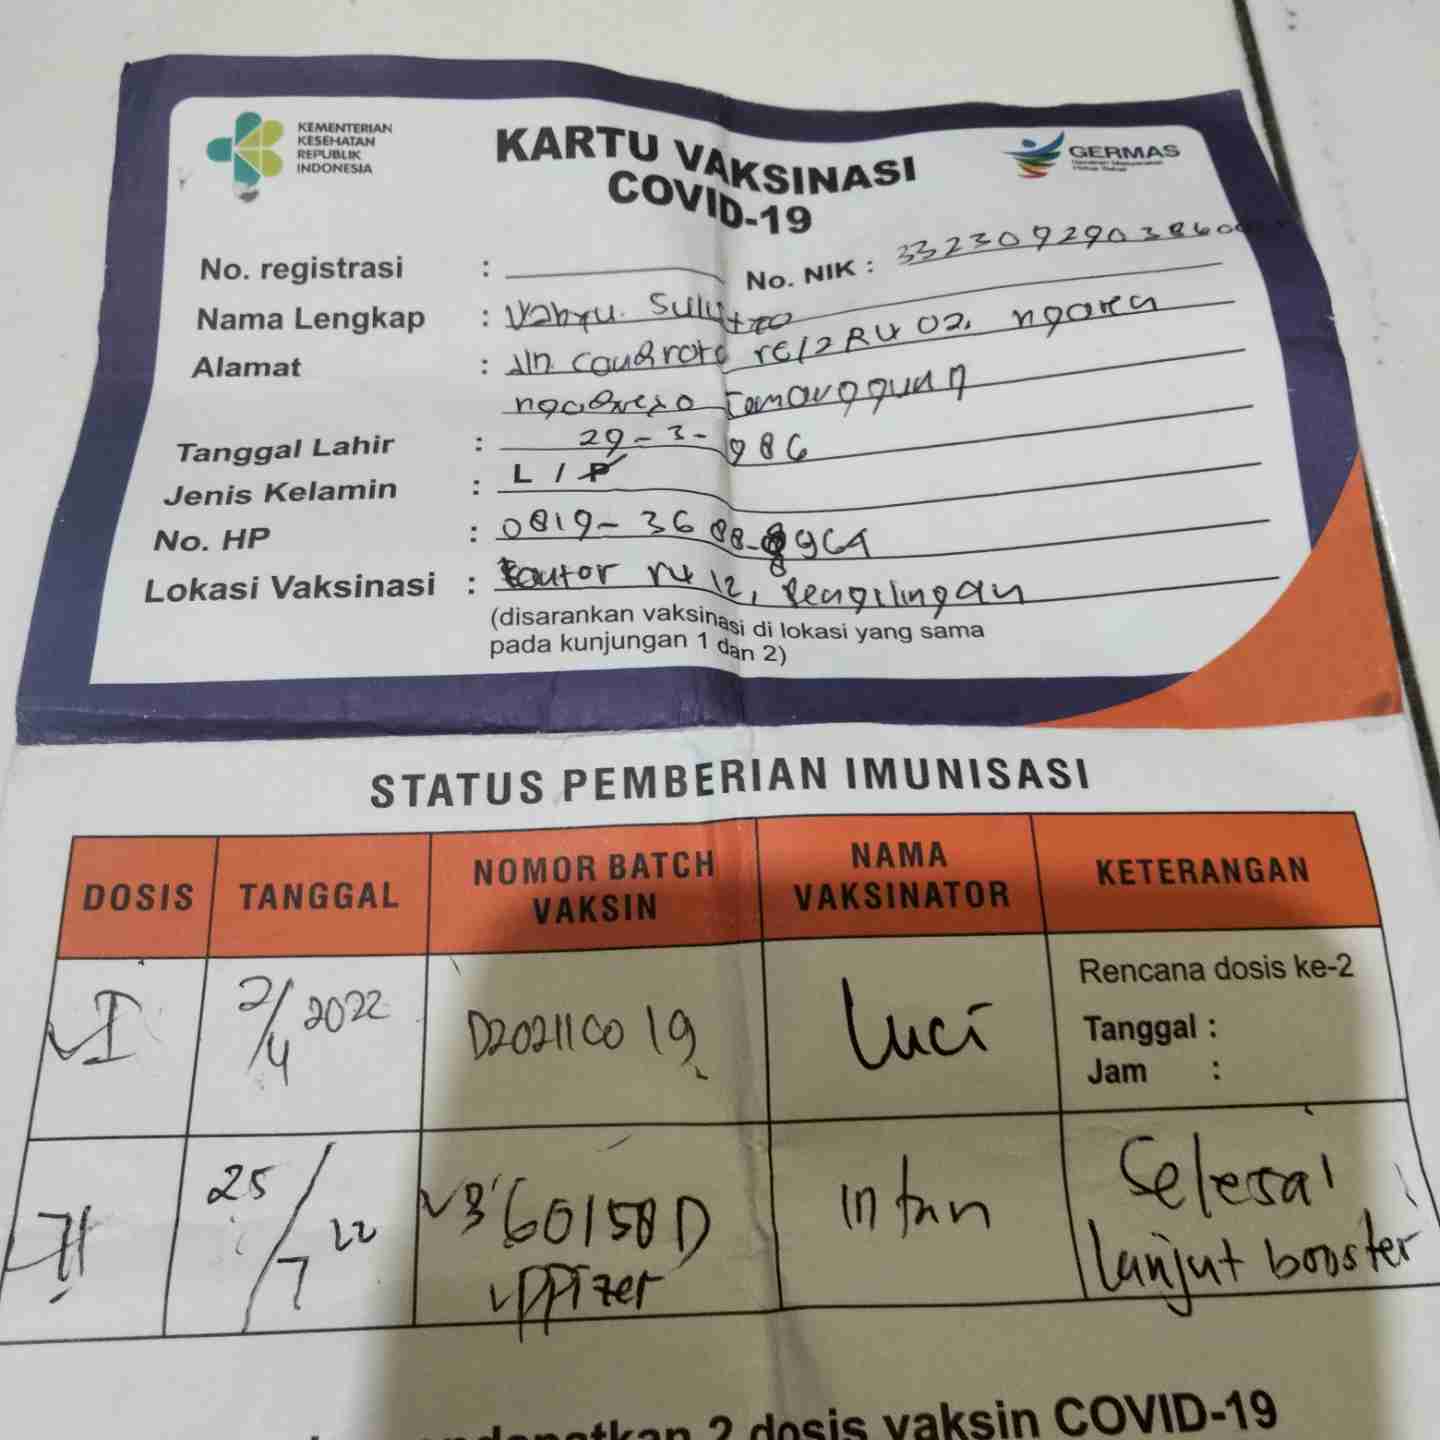 KEMENTERIAN
KESEHATAN
REPUBLIK
INDONESIA
KARTU VAKSINASI
COVID-19
GERMAS
No. registrasi :
No. NIK : 33230929038600
Nama Lengkap : Wahyu Sulistro
Alamat : Jln rt/2 RW 02, ngaren
ngadirejo Temanggung
Tanggal Lahir : 29-3-986
Jenis Kelamin : L / P
No. HP : 0819-3688-8964
Lokasi Vaksinasi : kantor rw 12, Pengilingan
(disarankan vaksinasi di lokasi yang sama
pada kunjungan 1 dan 2)
STATUS PEMBERIAN IMUNISASI
DOSIS TANGGAL NOMOR BATCH VAKSIN NAMA VAKSINATOR KETERANGAN
I 2/4 2022 D202110019 Luci Rencana dosis ke-2
Tanggal :
Jam :
II 25/7 22 60158D intan Selesai
Ppizer lanjut booster
2 dosis vaksin COVID-19